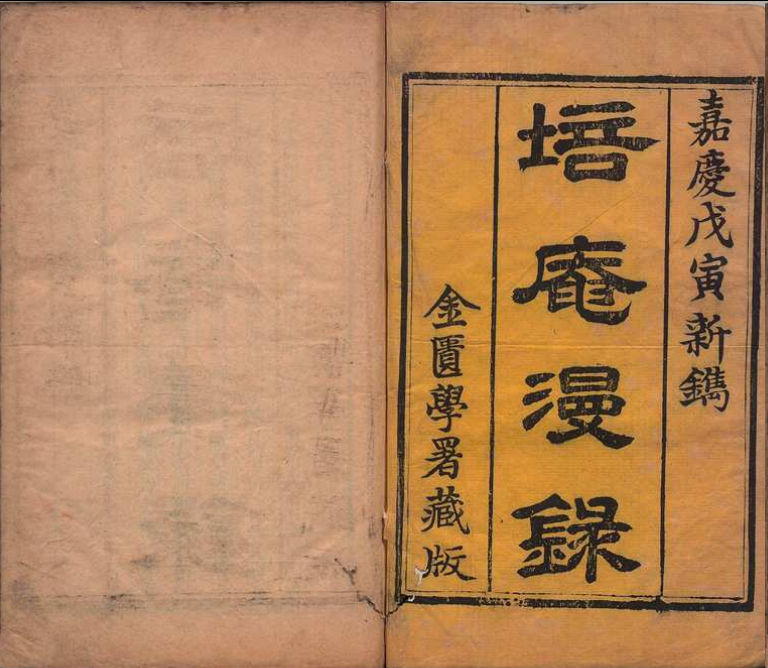 嘉慶戊寅新鐫
培庵漫録
金匱學署藏版